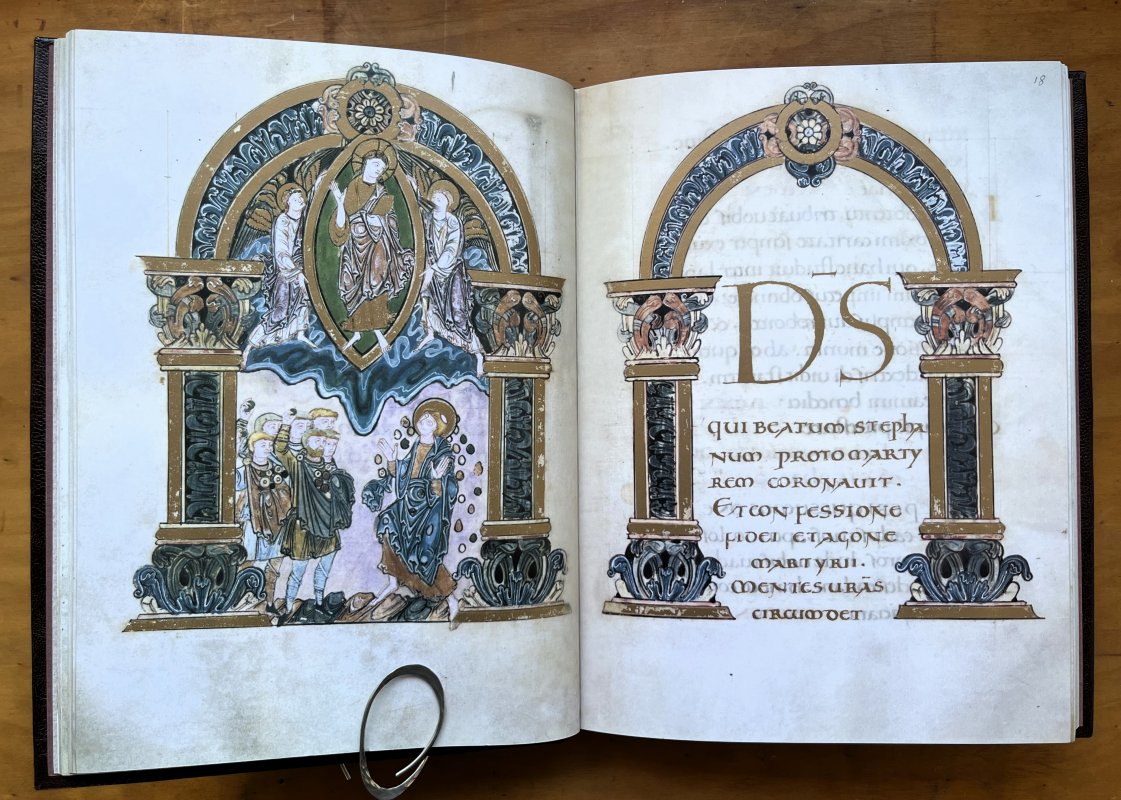 18
D̄S
QUI BEATUM STEPHA
NUM PROTOMARTY
REM CORONAVIT.
ET CONFESSIONE
FIDEI ET AGONE
MARTYRII.
MENTES URĀS
CIRCUMDET